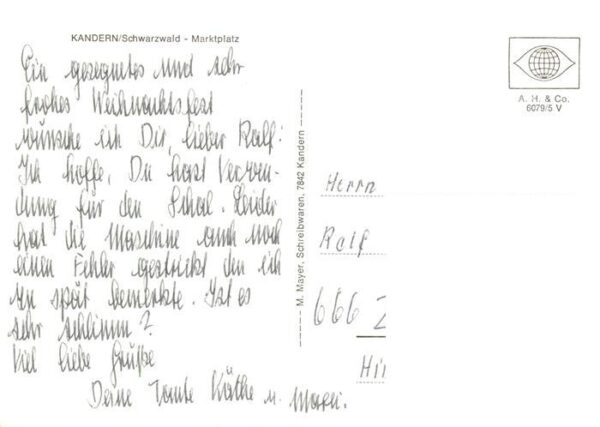 KANDERN/Schwarzwald - Marktplatz
Ein gesegnetes und sehr
frohes Weihnachtsfest
wünsche ich Dir, lieber Ralf!
Ich hoffe, Du hast Verwen-
dung für den Schal. Leider
hat die Maschine auch noch
einen Fehler gestrickt den ich
zu spät bemerkte. Ist es
sehr schlimm?
Viel liebe Grüße
Deine Tante Käthe u.
A. H. & Co.
6079/5 V
M. Mayer, Schreibwaren, 7842 Kandern
Herrn
Ralf
666